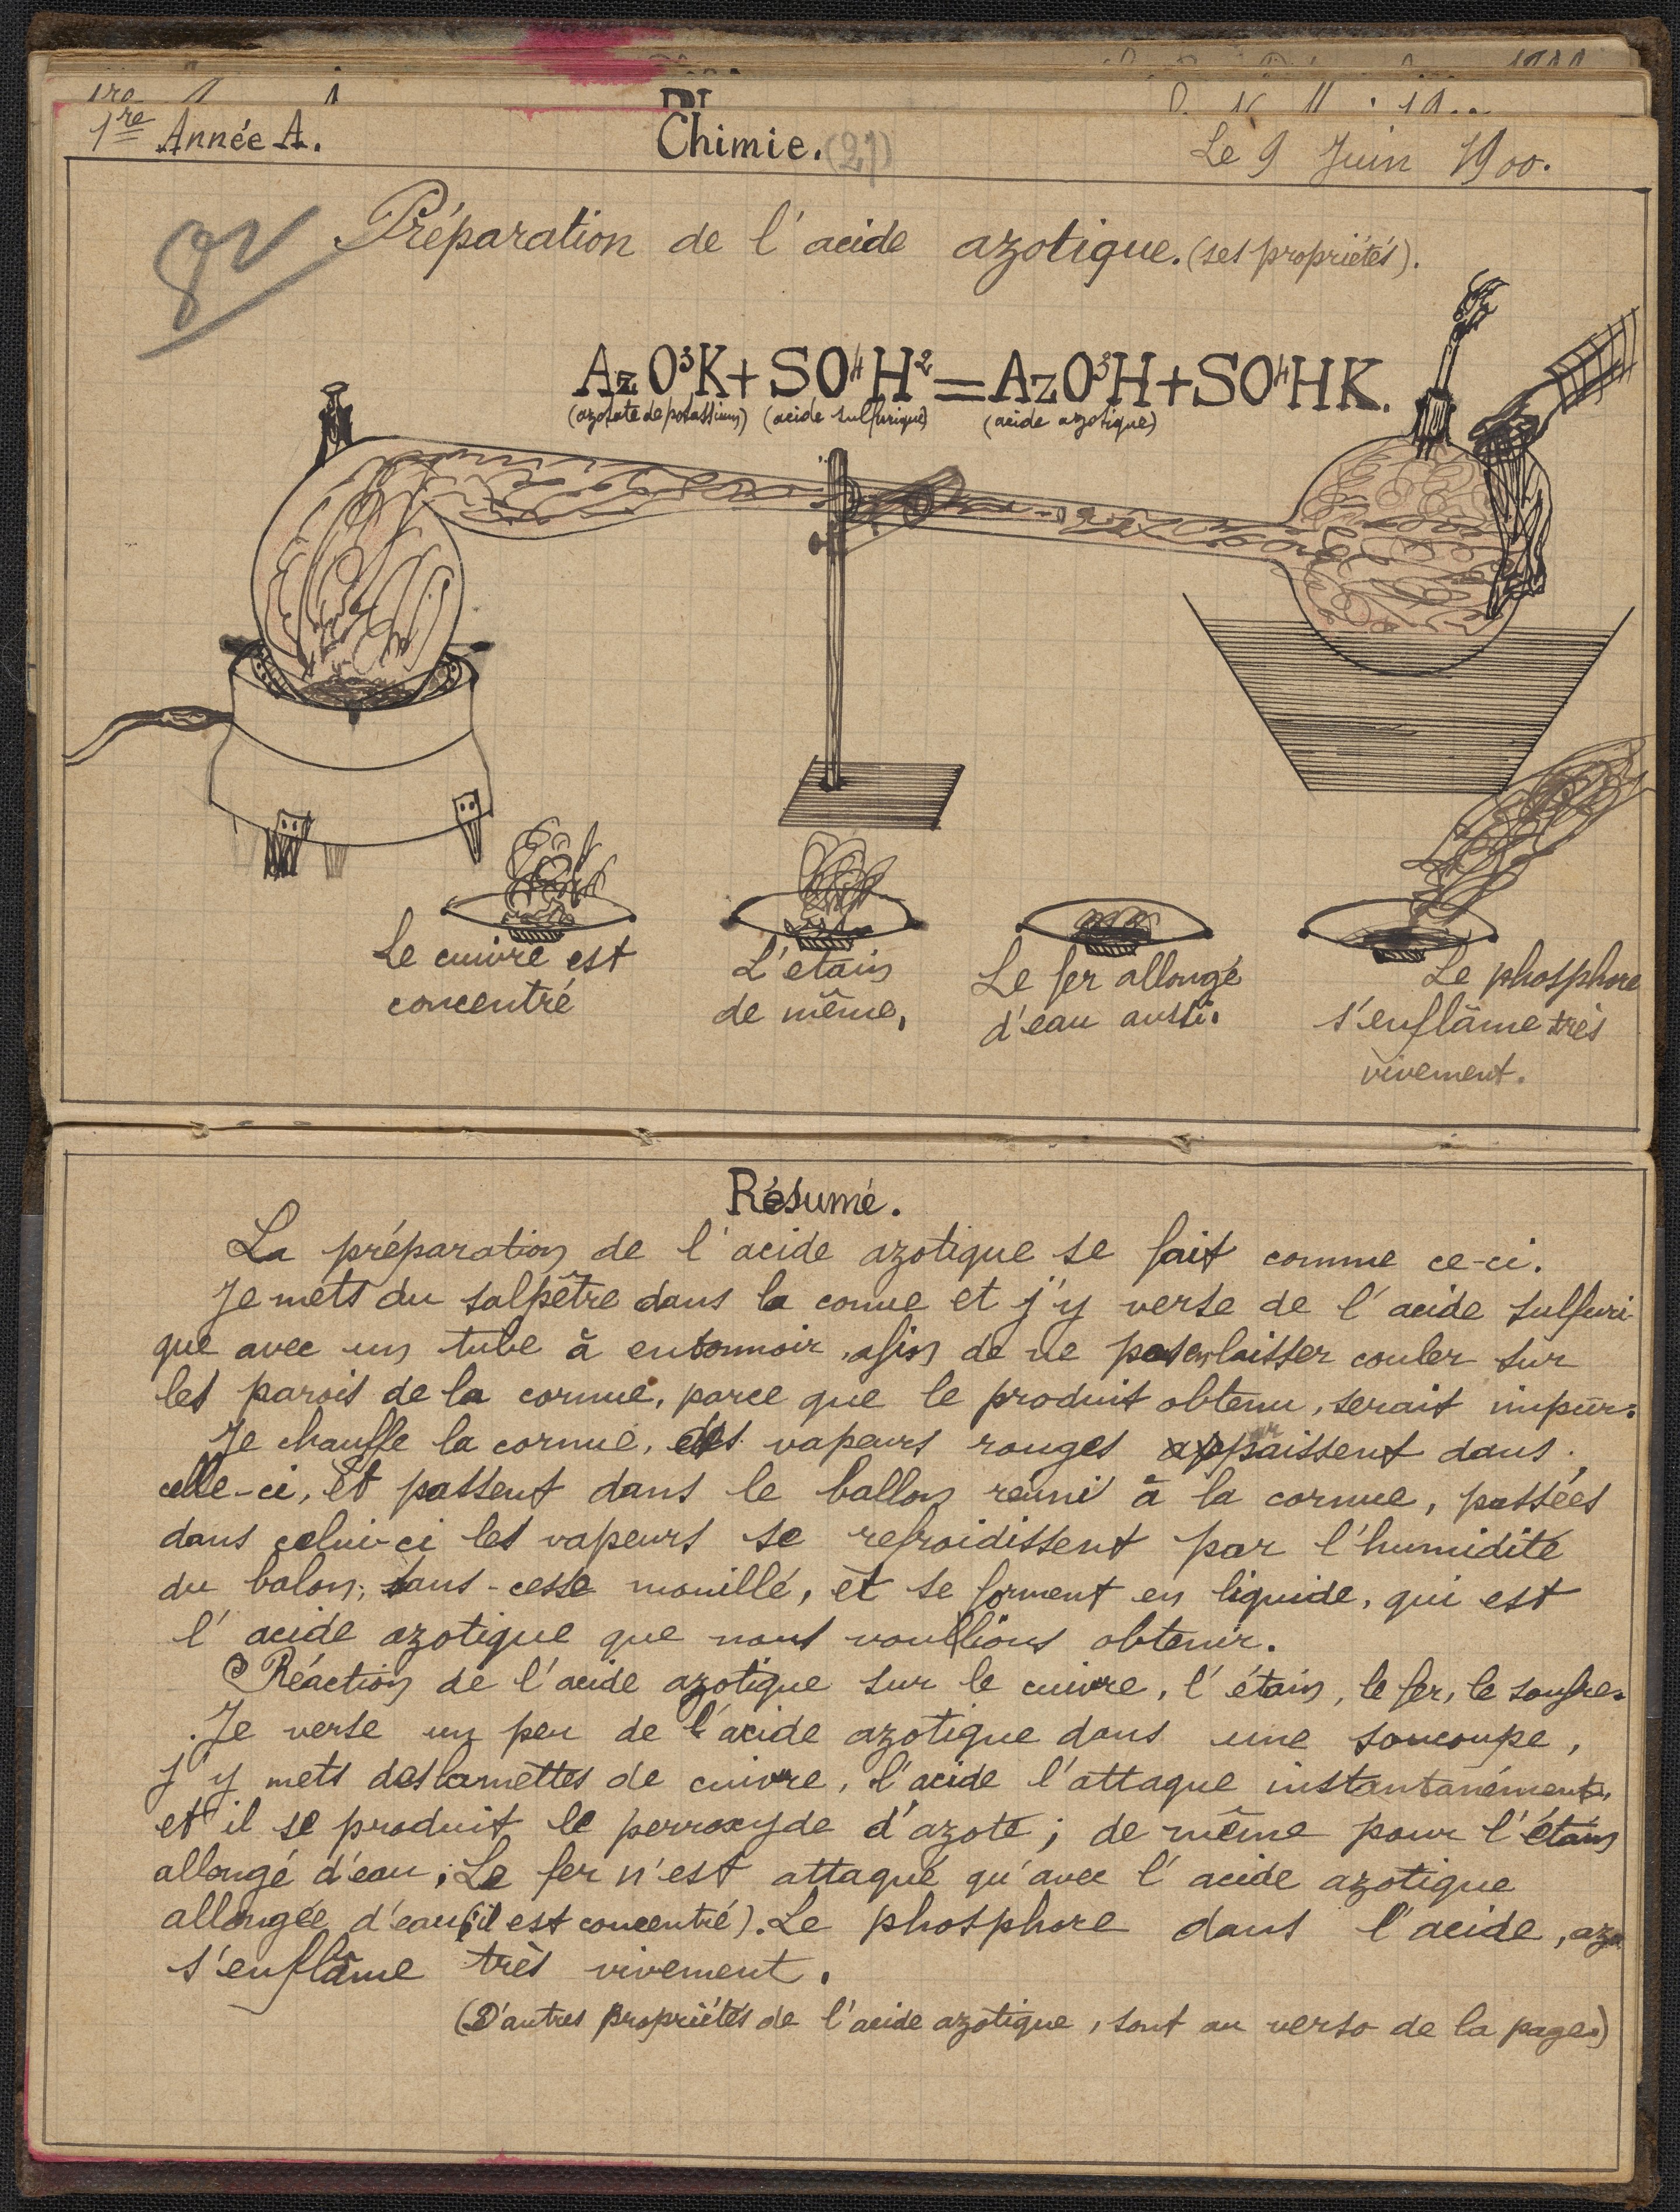 1re Année A.
Chimie. (21)
Le 9 Juin 1900.
Préparation de l'acide azotique. (ses propriétés).
AzO³K + SO⁴H² = AzO³H + SO⁴HK.
(azotate de potassium) (acide sulfurique) (acide azotique)
Le cuivre est
concentré
L'etain
de même,
Le fer allongé
d'eau aussi.
Le phosphore
s'enflâme très
vivement.
Résumé.
La préparation de l'acide azotique se fait comme ce-ci.
Je mets du salpêtre dans la cornue et j'y verse de l'acide sulfuri-
que avec un tube à entonnoir, afin de ne pas en laisser couler sur
les parois de la cornue, parce que le produit obtenu, serait impur.
Je chauffe la cornue, des vapeurs rouges appaissent dans
celle-ci, et passent dans le ballon réuni à la cornue, passées
dans celui-ci les vapeurs se refroidissent par l'humidité
du balon, sans-cesse mouillé, et se forment en liquide, qui est
l'acide azotique que nous voullions obtenir.
Réaction de l'acide azotique sur le cuivre, l'étain, le fer, le soufre.
Je verse un peu de l'acide azotique dans une soucoupe,
j'y mets des lamettes de cuivre, l'acide l'attaque instantanément,
et il se produit le perroxyde d'azote; de même pour l'étain
allongé d'eau. Le fer n'est attaqué qu'avec l'acide azotique
allongée d'eau (il est concentré). Le phosphore dans l'acide, azo
s'enflâme très vivement.
(D'autres propriétés de l'acide azotique, sont au verso de la page.)